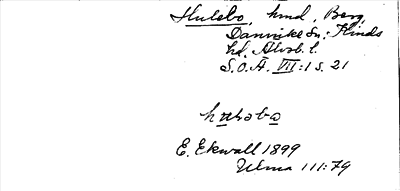 Hulebo, hmd, Berg,
Dannike sn, Kinds
hd, Älvsb. l.
S.O.Ä. VII:1 s. 21
E. Ekwall 1899
Ulma 111:79